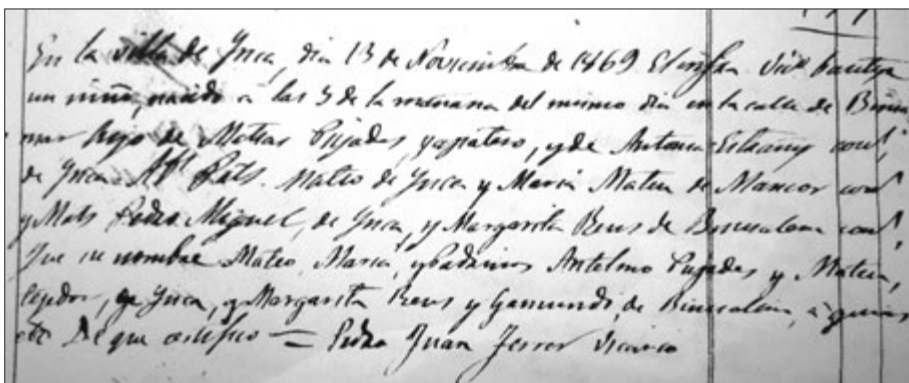 En la villa de Ynca, dia 13 de Noviembre de 1869 El infra Vic.º bautizé
un niño, nacido á las 3 de la mañana del mismo dia en la calle de
mar hijo de Mateo Pujadas, zapatero, y de Antonia Estrany
de Ynca. Ab.s Pat.s Mateo de Ynca y Maria Mateu de Mancor
y Mat.s Pedro Miguel, de Ynca, y Margarita Reus de Binisalem
Fue su nombre Mateo, Maria, y Padrinos Antelmo Pujadas y Mateu,
tejedor, de Ynca, y Margarita Reus y Gamundi, de Binisalem, á quienes
etc. De que certifico = Pedro Juan Ferrer Vicario